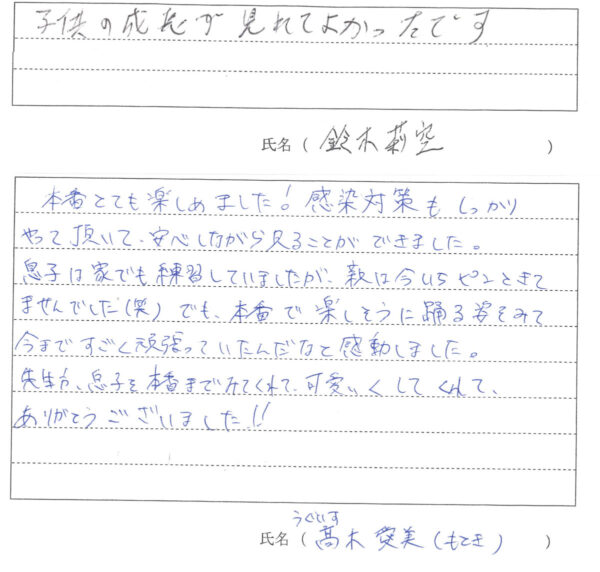 子供の成長が見れてよかったです
氏名 ( 鈴木莉空 )
本番とても楽しめました! 感染対策もしっかり
やって頂いて、安心しながら見ることができました。
息子は家でも練習していましたが、親は今いちピンときて
ませんでした(笑) でも、本番で楽しそうに踊る姿をみて
今まですごく頑張っていたんだなと感動しました。
先生方、息子を本番までみてくれて、可愛いくしてくれて、
ありがとうございました!!
うぐいす
氏名 ( 髙木愛美 (もてき) )